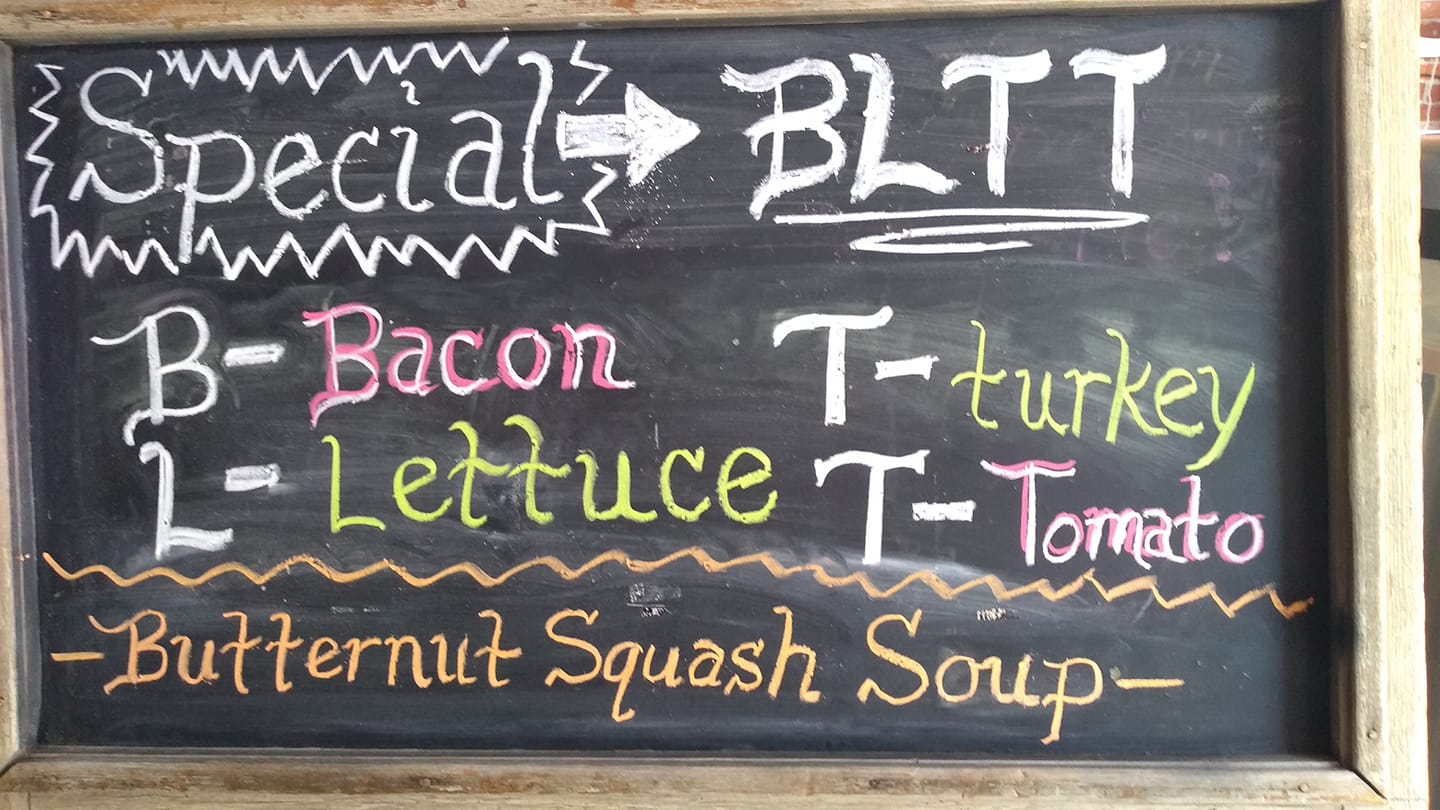 Special BLTT
B- Bacon T- turkey
L- Lettuce T- Tomato
- Butternut Squash Soup -